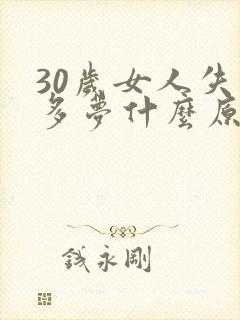 30歲女人失
多夢什麼原
錢永剛